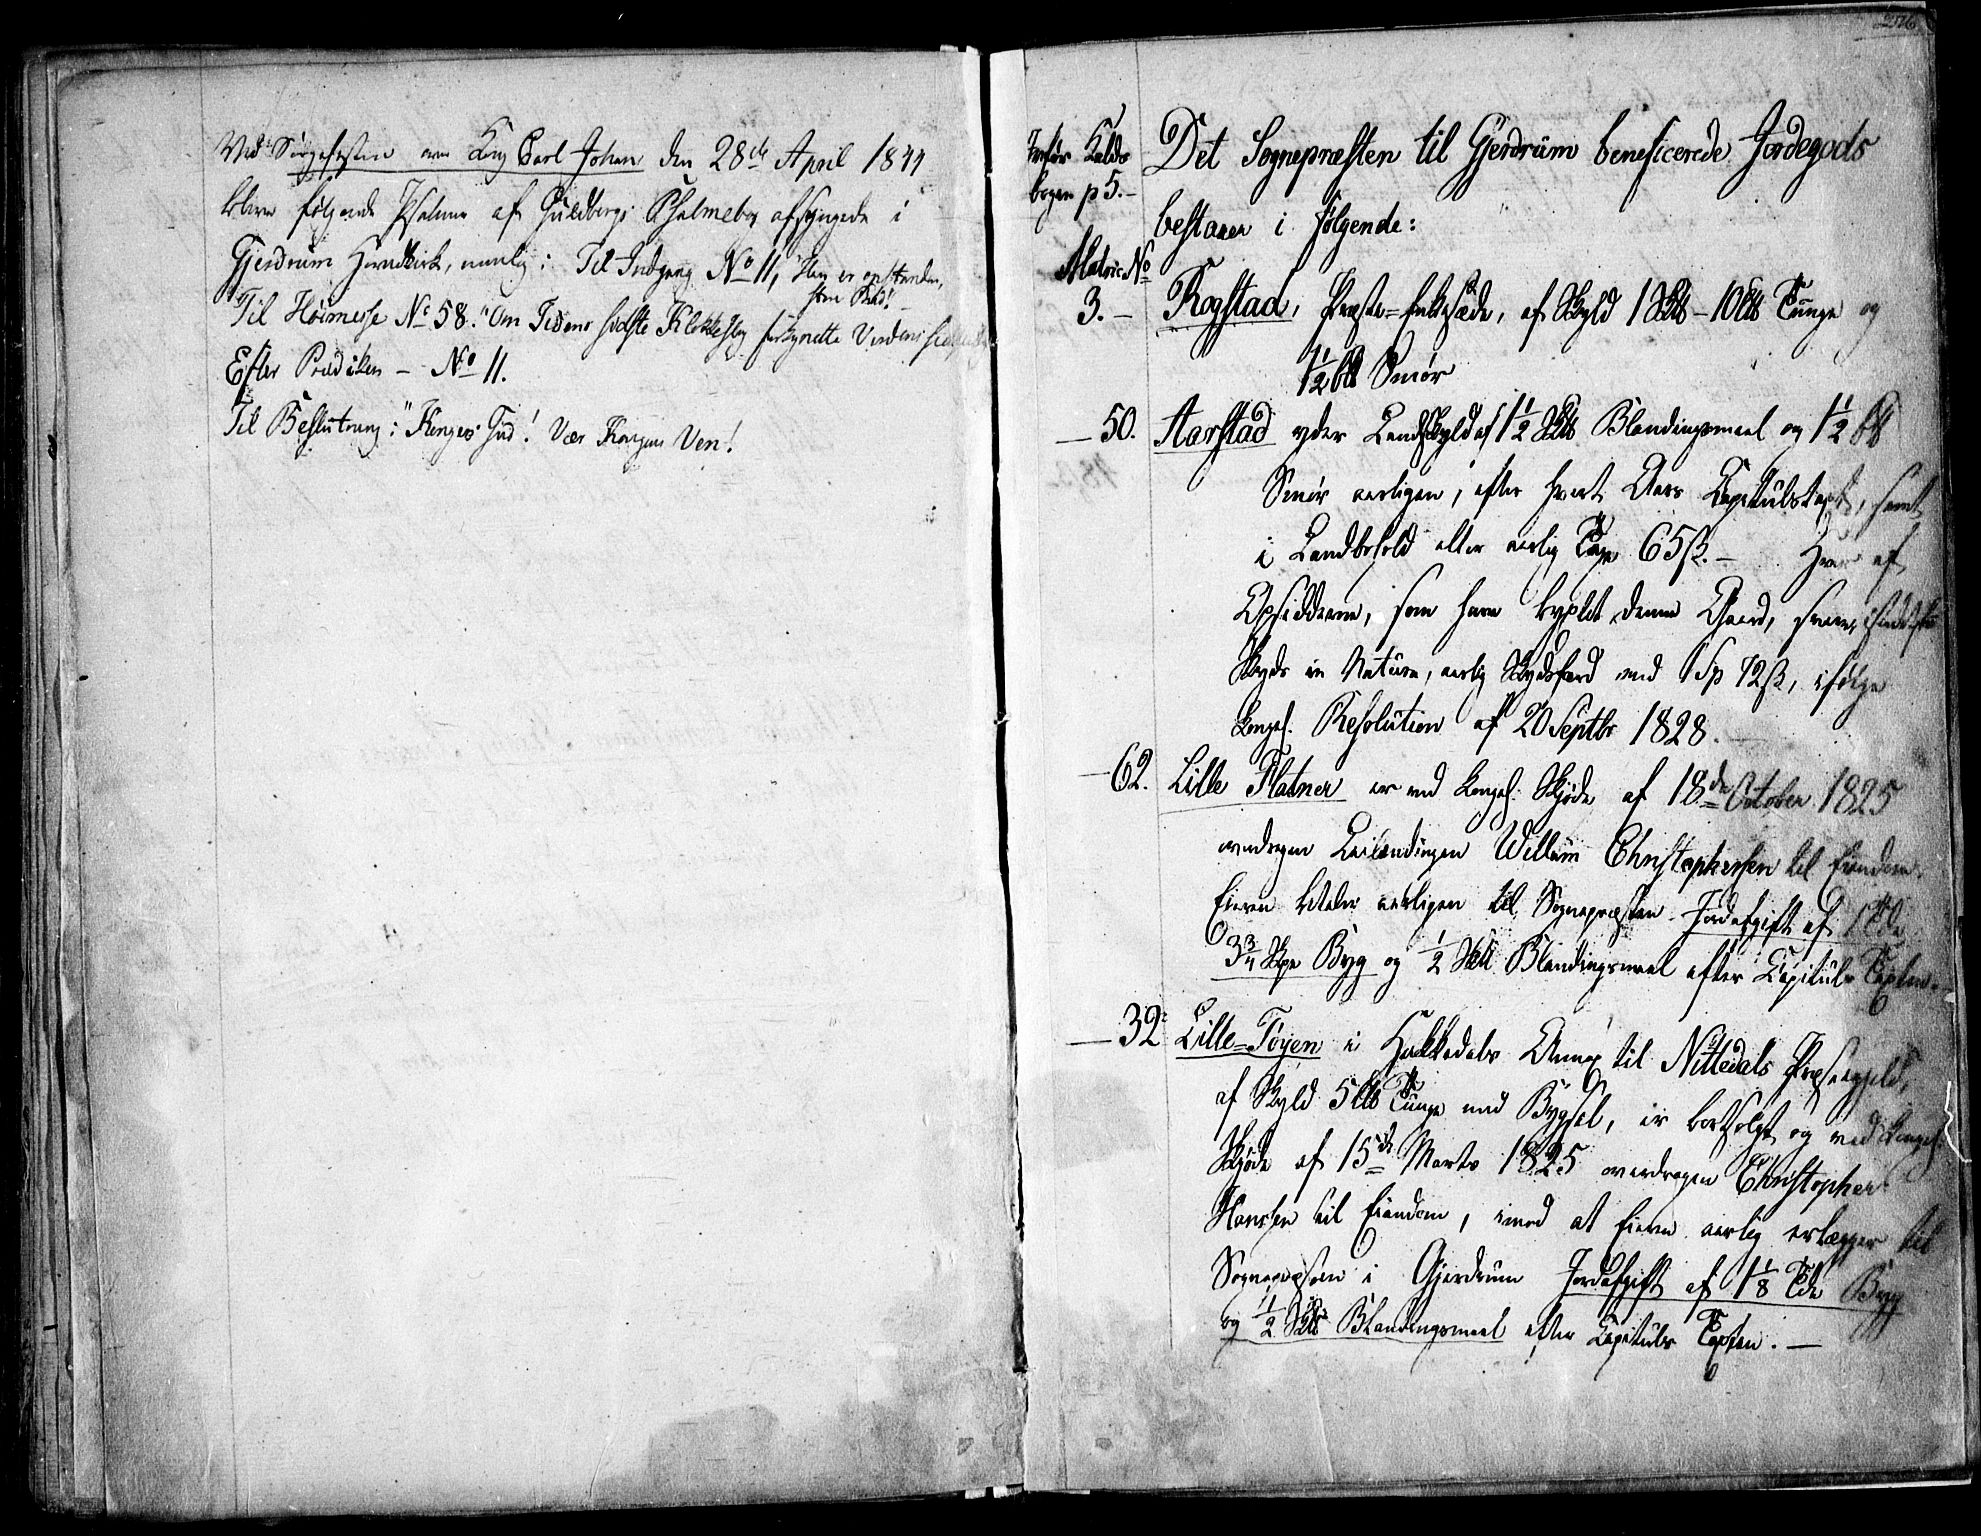 Ved Sørgefesten over Kong Carl Johan den 28de April 1844
bleve følgende Psalmer af Guldbergs Psalmebog afsjungede i
Gjerdrum Hovedkirk, nemlig: Til Indgang No 11, "Han er opstanden,
stor Bud!
Til Höimesse No 58. "Om Tidens sidste Klokkeslag forkyndte Verdens
Efter Prædiken – No 11.
Til Beslutning: "Kongers Gud! Vær Kongens Ven!
256
Jevfør Kalds-
bogen p 5.–
Det Sognepræsten til Gjerdrum beneficerede Jordegods
bestaaer i følgende:
Matric No
3.– Rogstad, Præste-Enkesæde, af Skyld 1 Sk℔ – 10 ℔ Tunge og
1½ ℔ Smör
— 50. Aarstad yder Landskyld af 1½ Sk℔ Blandingsmeel og 1½ ℔
Smör aarligen, efter hvert Aars Capitulstaxt, samt
i Landbohold efter aarlig Taxt 65 ß.– Hver af
Opsidderne, som have byxlet denne Gaard, svarer, istedetfor
Skyds in Natura, aarlig Skydsfærd med 1 Sp 72 ß, ifölge
kongel. Resolution af 20 Septbr 1828.
— 62. Lille Flatner er ved kongel. Skjöde af 18de October 1825
overdragen Leilændingen Willum Christophersen til Eiendom.
Eieren betaler aarligen til Sognepræsten Jordafgift af 1 Tde
3¾ Skpe Byg og ½ Sk℔ Blandingsmeel efter Capituls Taxten.
— 32. Lille-Töyen i Hakkedals Annex til Nittedals Præstegjeld,
af Skyld 5 ℔ Tunge med Bygsel, er bortsolgt og ved kongel.
Skjöde af 15de Marts 1825 overdragen Christopher
Hansen til Eiendom, imod at Eieren aarlig erlægger til
Sognepræsten i Gjerdrum Jordafgift af 1⅛ Tde Byg
og ½ Sk℔ Blandingsmeel efter Capituls Taxten. —